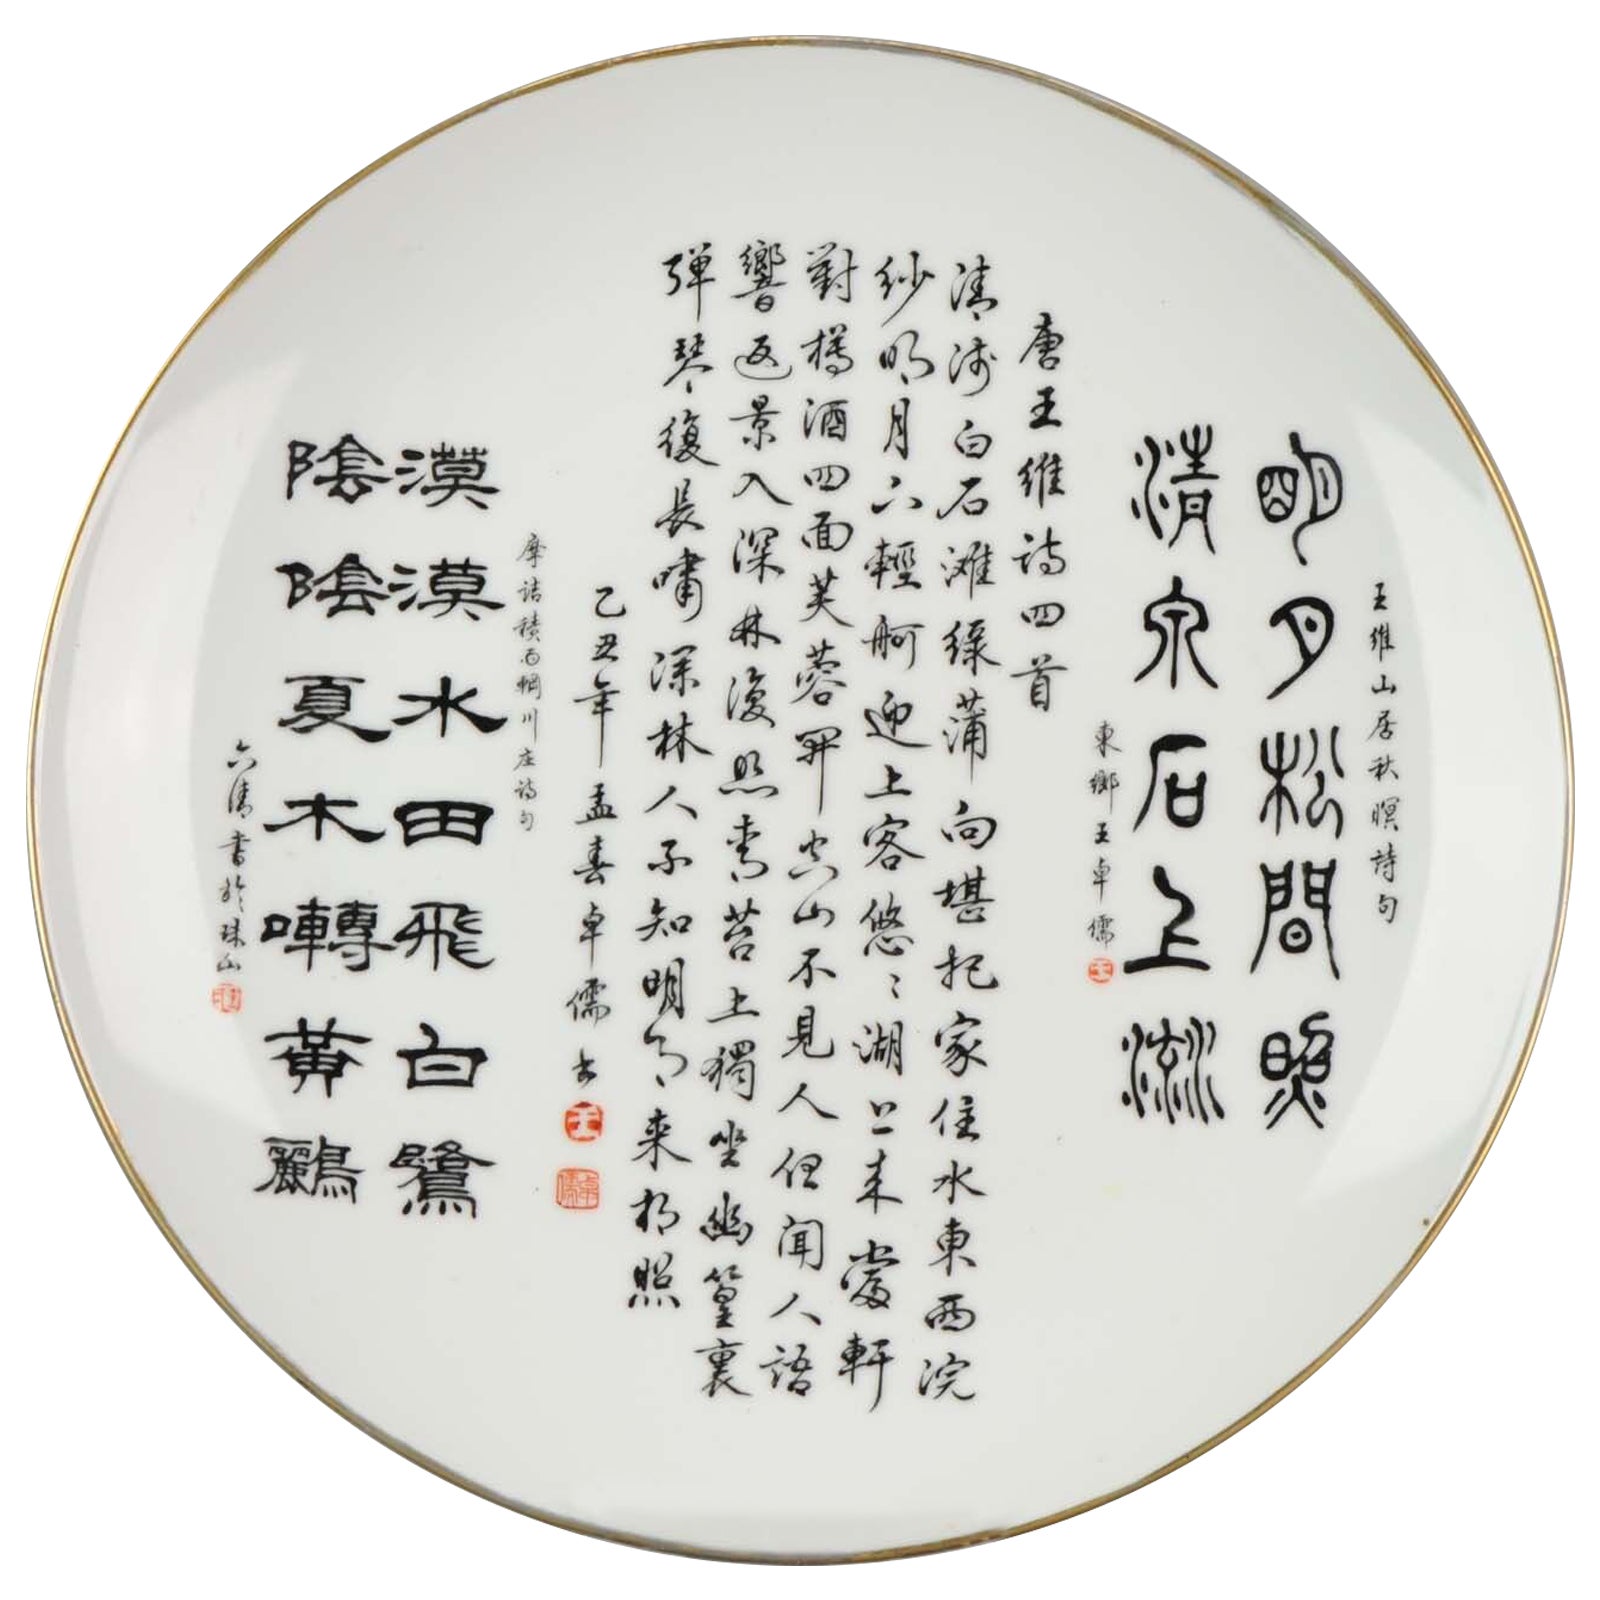 王維山居秋暝詩句
明月松間照
清泉石上流
東鄉王卓儒
唐王維詩四首
清淺白石灘綠蒲向堪把家住水東西浣
紗明月下輕舸迎上客悠悠湖上來當軒
對樽酒四面芙蓉開空山不見人但聞人語
響返景入深林復照青苔上獨坐幽篁裏
彈琴復長嘯深林人不知明月來相照
乙丑年孟春卓儒書
王
卓儒
摩詰積雨輞川庄詩句
漠漠水田飛白鷺
陰陰夏木囀黃鸝
六清書於珠山